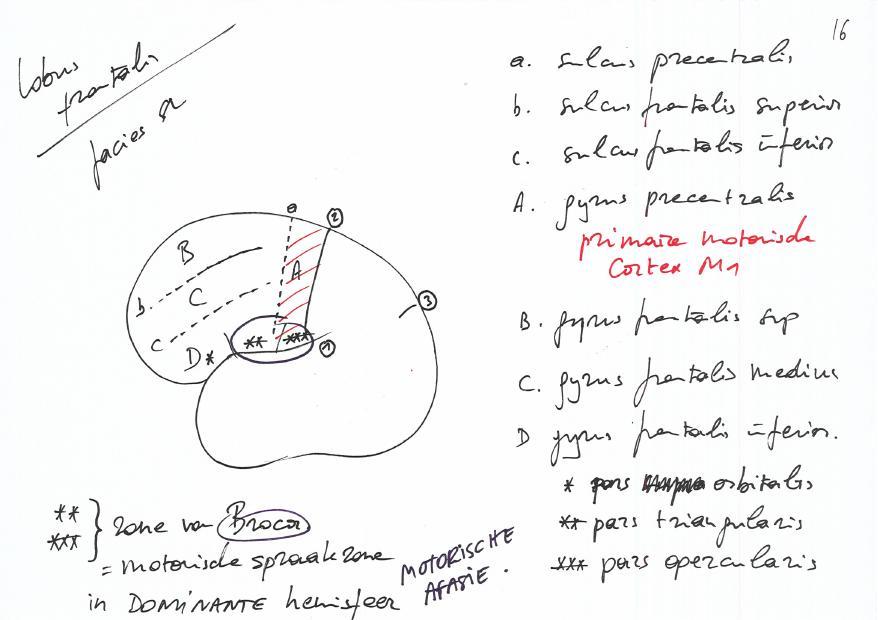 16
Lobus
frontalis
facies
a. sulcus precentralis
b. sulcus frontalis superior
c. sulcus frontalis inferior
A. gyrus precentralis
primaire motorische
Cortex M1
B. gyrus frontalis sup
C. gyrus frontalis medius
D gyrus frontalis inferior.
* pars orbitalis
** pars triangularis
*** pars opercularis
a
2
B
A
b.
C
3
c
D *
**
***
1
**
***
} zone van Broca
= motorische spraakzone
in DOMINANTE hemisfeer
MOTORISCHE
AFASIE.